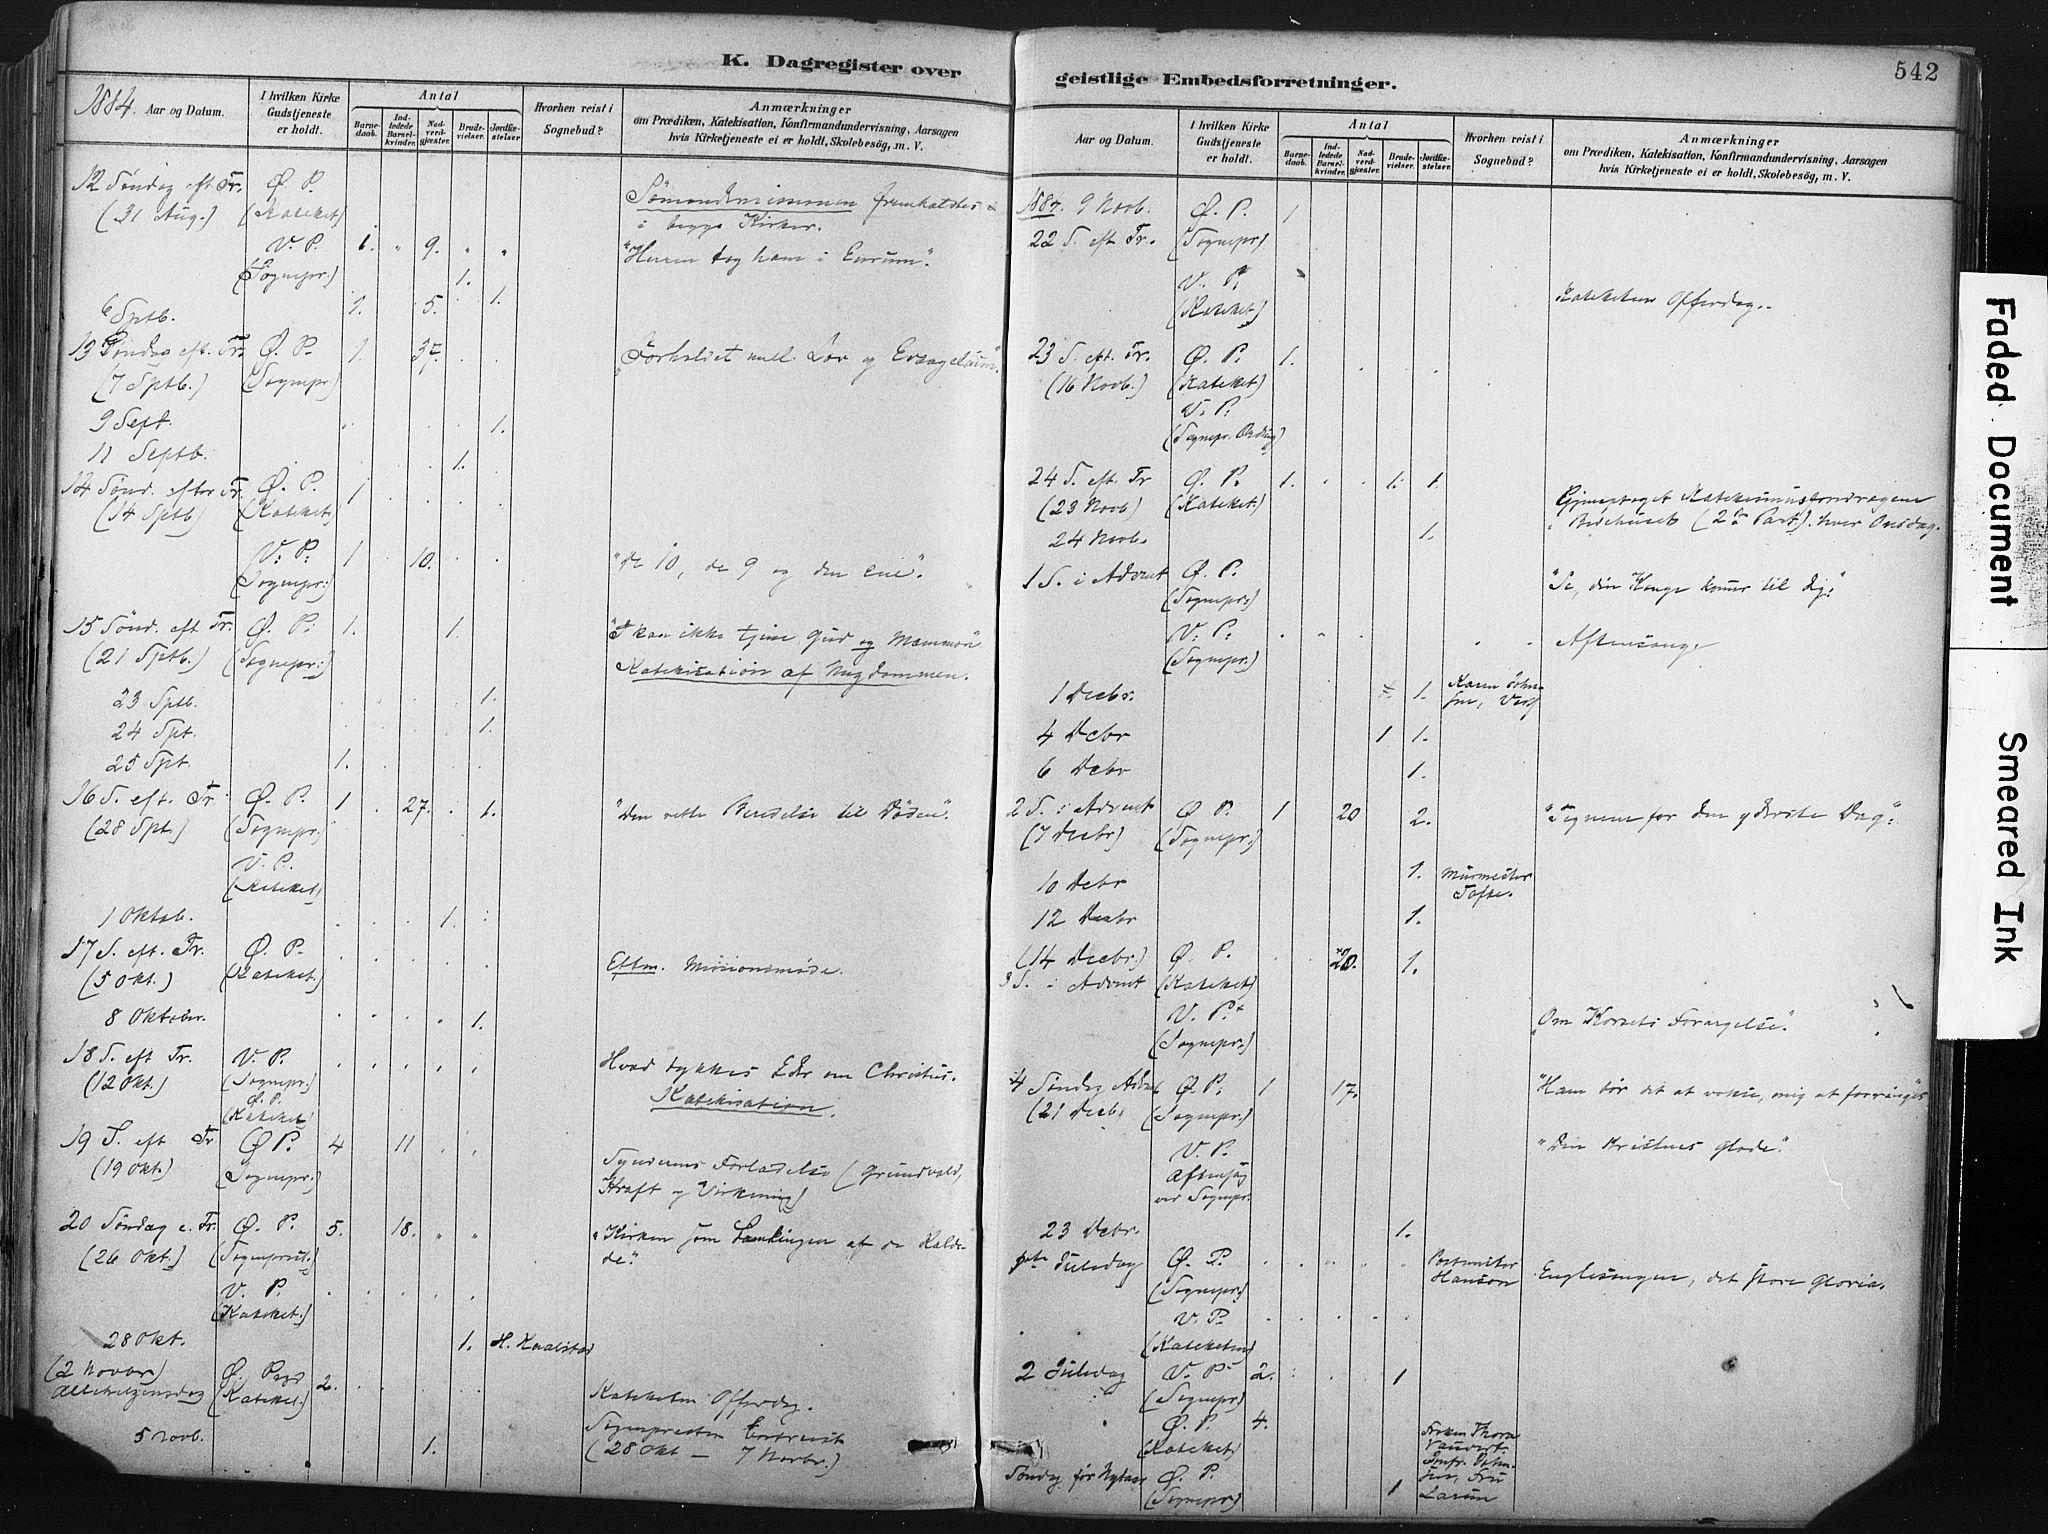 K. Dagregister over
1884.
Aar og Datum.
I hvilken Kirke Gudstjeneste er holdt.
Antal
Barnedaab.
Indledede Barselkvinder.
Nadverdgjæster.
Brudevielser.
Jordfæstelser.
Hvorhen reist i Sognebud?
Anmærkninger
om Prædiken, Katekisation, Konfirmandundervisning, Aarsagen
hvis Kirketjeneste ei er holdt, Skolebesög, m. V.
12 Søndag eft Tr. Ø. P.
(31 Aug.) (Kateket) Sømandsmissionen fremholdtes
i begge Kirker.
V. P. 1. " 9. " "
(Sognepr.) 1. "Herren tog ham i Enrum".
6 Sptb. 1. 5. 1.
13 Søndag eft. Tr. Ø. P. 1. 37. "Forholdet mell. Lov og Evangelium".
(7 Sptb.) (Sognepr.)
9 Sept. 1.
11 Septb. 1.
14 Sønd. efter Tr. Ø. P. 1
(14 Sptb) (Kateket.)
V. P. 1 10. "de 10, de 9 og den ene".
(Sognepr.)
15 Sønd. eft Tr. Ø. P. 1. 1. "I kan ikke tjene Gud og Mammon"
(21 Sptb.) (Sognepr.) Katekisation af Ungdommen.
23 Sptb. 1.
24 Spt. 1.
25 Spt. 1.
16 S. eft. Tr. Ø. P. 1 27. 1. "Den rette Beredelse til Døden".
(28 Spt.) (Sognepr.)
V. P.
(Kateket)
1 Oktob. 1.
17 S. eft. Tr. Ø. P.
(5 Okt.) (Kateket.) Eftm. Missionsmøde.
8 Oktober. 1.
18 S. eft Tr. V. P. Hvad tykkes Eder om Christus.
(12 Okt.) (Sognepr.) Katekisation.
Ø. P.
(Kateket)
19 S. eft Tr Ø P. 4 11
(19 Okt) (Sognepr.) Syndernes Forladelse (Grundvold,
Kraft og Virkning)
20 Søndag e. Tr. Ø. P. 5. 18. " " "Kirken som Samlingen af de Kaldede."
(26 Okt.) (Sogneprest.)
V. P.
(Kateket.)
28 Okt. 1. H. Kaalstad
(2 Novbr) Ø. P.
Allehelgensdag (Kateket.) 2. Kateketens Offerdag.
5 Novb. 1. Sognepresten bortreist
(28 Okt — 7 Novbr.)
geistlige Embedsforretninger.
542
Aar og Datum.
I hvilken Kirke Gudstjeneste er holdt.
Antal
Barnedaab.
Indledede Barselkvinder.
Nadverdgjæster.
Brudevielser.
Jordfæstelser.
Hvorhen reist i Sognebud?
Anmærkninger
om Prædiken, Katekisation, Konfirmandundervisning, Aarsagen
hvis Kirketjeneste ei er holdt, Skolebesög, m. V.
1884. 9 Novb. Ø. P. 1
22 S. eft Tr. (Sognepr)
V. P.
(Kateket) Kateketens Offerdag.
23 S. eft. Tr. Ø. P. 1.
(16 Novb.) (Kateket)
V. P.
(Sognepr.
24 S. eft. Tr Ø. P. 1. 1. 1.
(23 Novb) (Kateket.) Gjenoptaget Katekismusforedragene
24 Novb. 1. i Bedehuset (2den Part). hver Onsdag.
1 S. i Advent Ø. P. "Se, din Konge kommer til dig."
(Sognepr.)
V. P. Aftensang
(Sognepr.)
1 Decbr. 1. Karen John
4 Dcbr 1 1.
6 Dcbr 1.
2 S. i Advent Ø P. 1 20 2. "Tegnene for den yderste Dag".
(7 Decbr) (Sognepr.)
10 Dcbr 1. Murmester Tofte.
12 Decbr 1.
(14 Decbr.) Ø. P. 20. 1.
3 S. i Advent (Kateket)
V. P. "Om Korsets Forargelse".
(Sognepr.)
4 Søndag Advent Ø. P. 1 17. "Ham bør det at voxe, mig at forringes"
(21 Decb. (Sognepr.)
V. P. "Den Kristnes Glæde".
Aftensang
ved Sognepr.
23 Dcbr. 1.
Juledag Ø. P. Postmester Hanson Englesangen, det store Gloria.
(Sognepr.)
V. P.
(Kateketen)
2 Juledag V. P. 2. 1
(Sognepr)
Ø. P. 4.
(Kateket)
Frøken Thora
Søndag før Nytaar Ø. P. 1
(Sognepr) Fru Larum
Faded Document
Smeared Ink